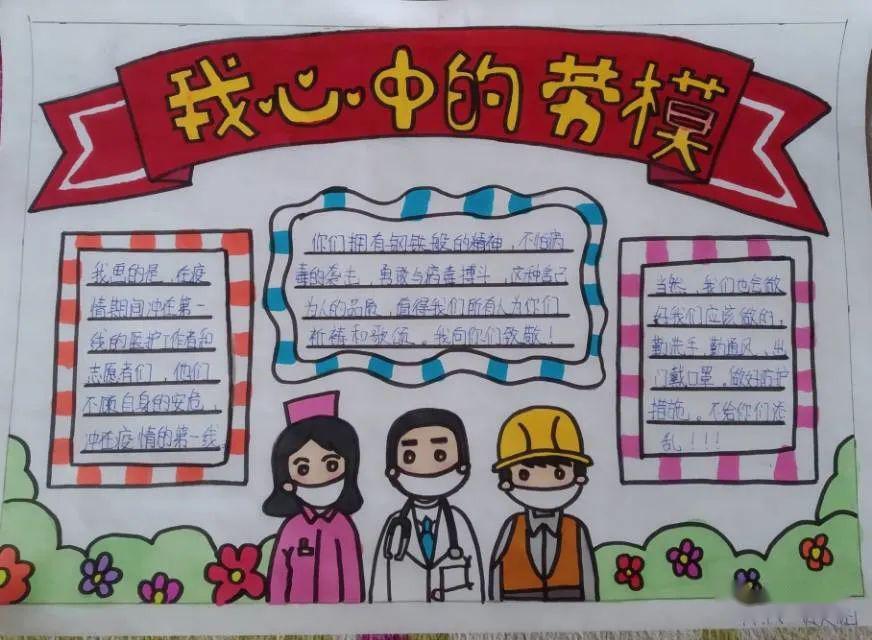 我心中的劳模
我思的是,在疫
情期间冲在第一
线的医护工作者和
志愿者们,他们
不顾自身的安危,
冲在疫情的第一线
你们拥有钢铁般的精神,不怕病
毒的袭击,勇敢与病毒搏斗,这种舍己
为人的品质,值得我们所有人为你们
祈祷和歌颂。我向你们致敬!
当然,我们也会做
好我们应该做的,
勤洗手、勤通风、出
门戴口罩。做好防护
措施。不给你们添
乱!!!